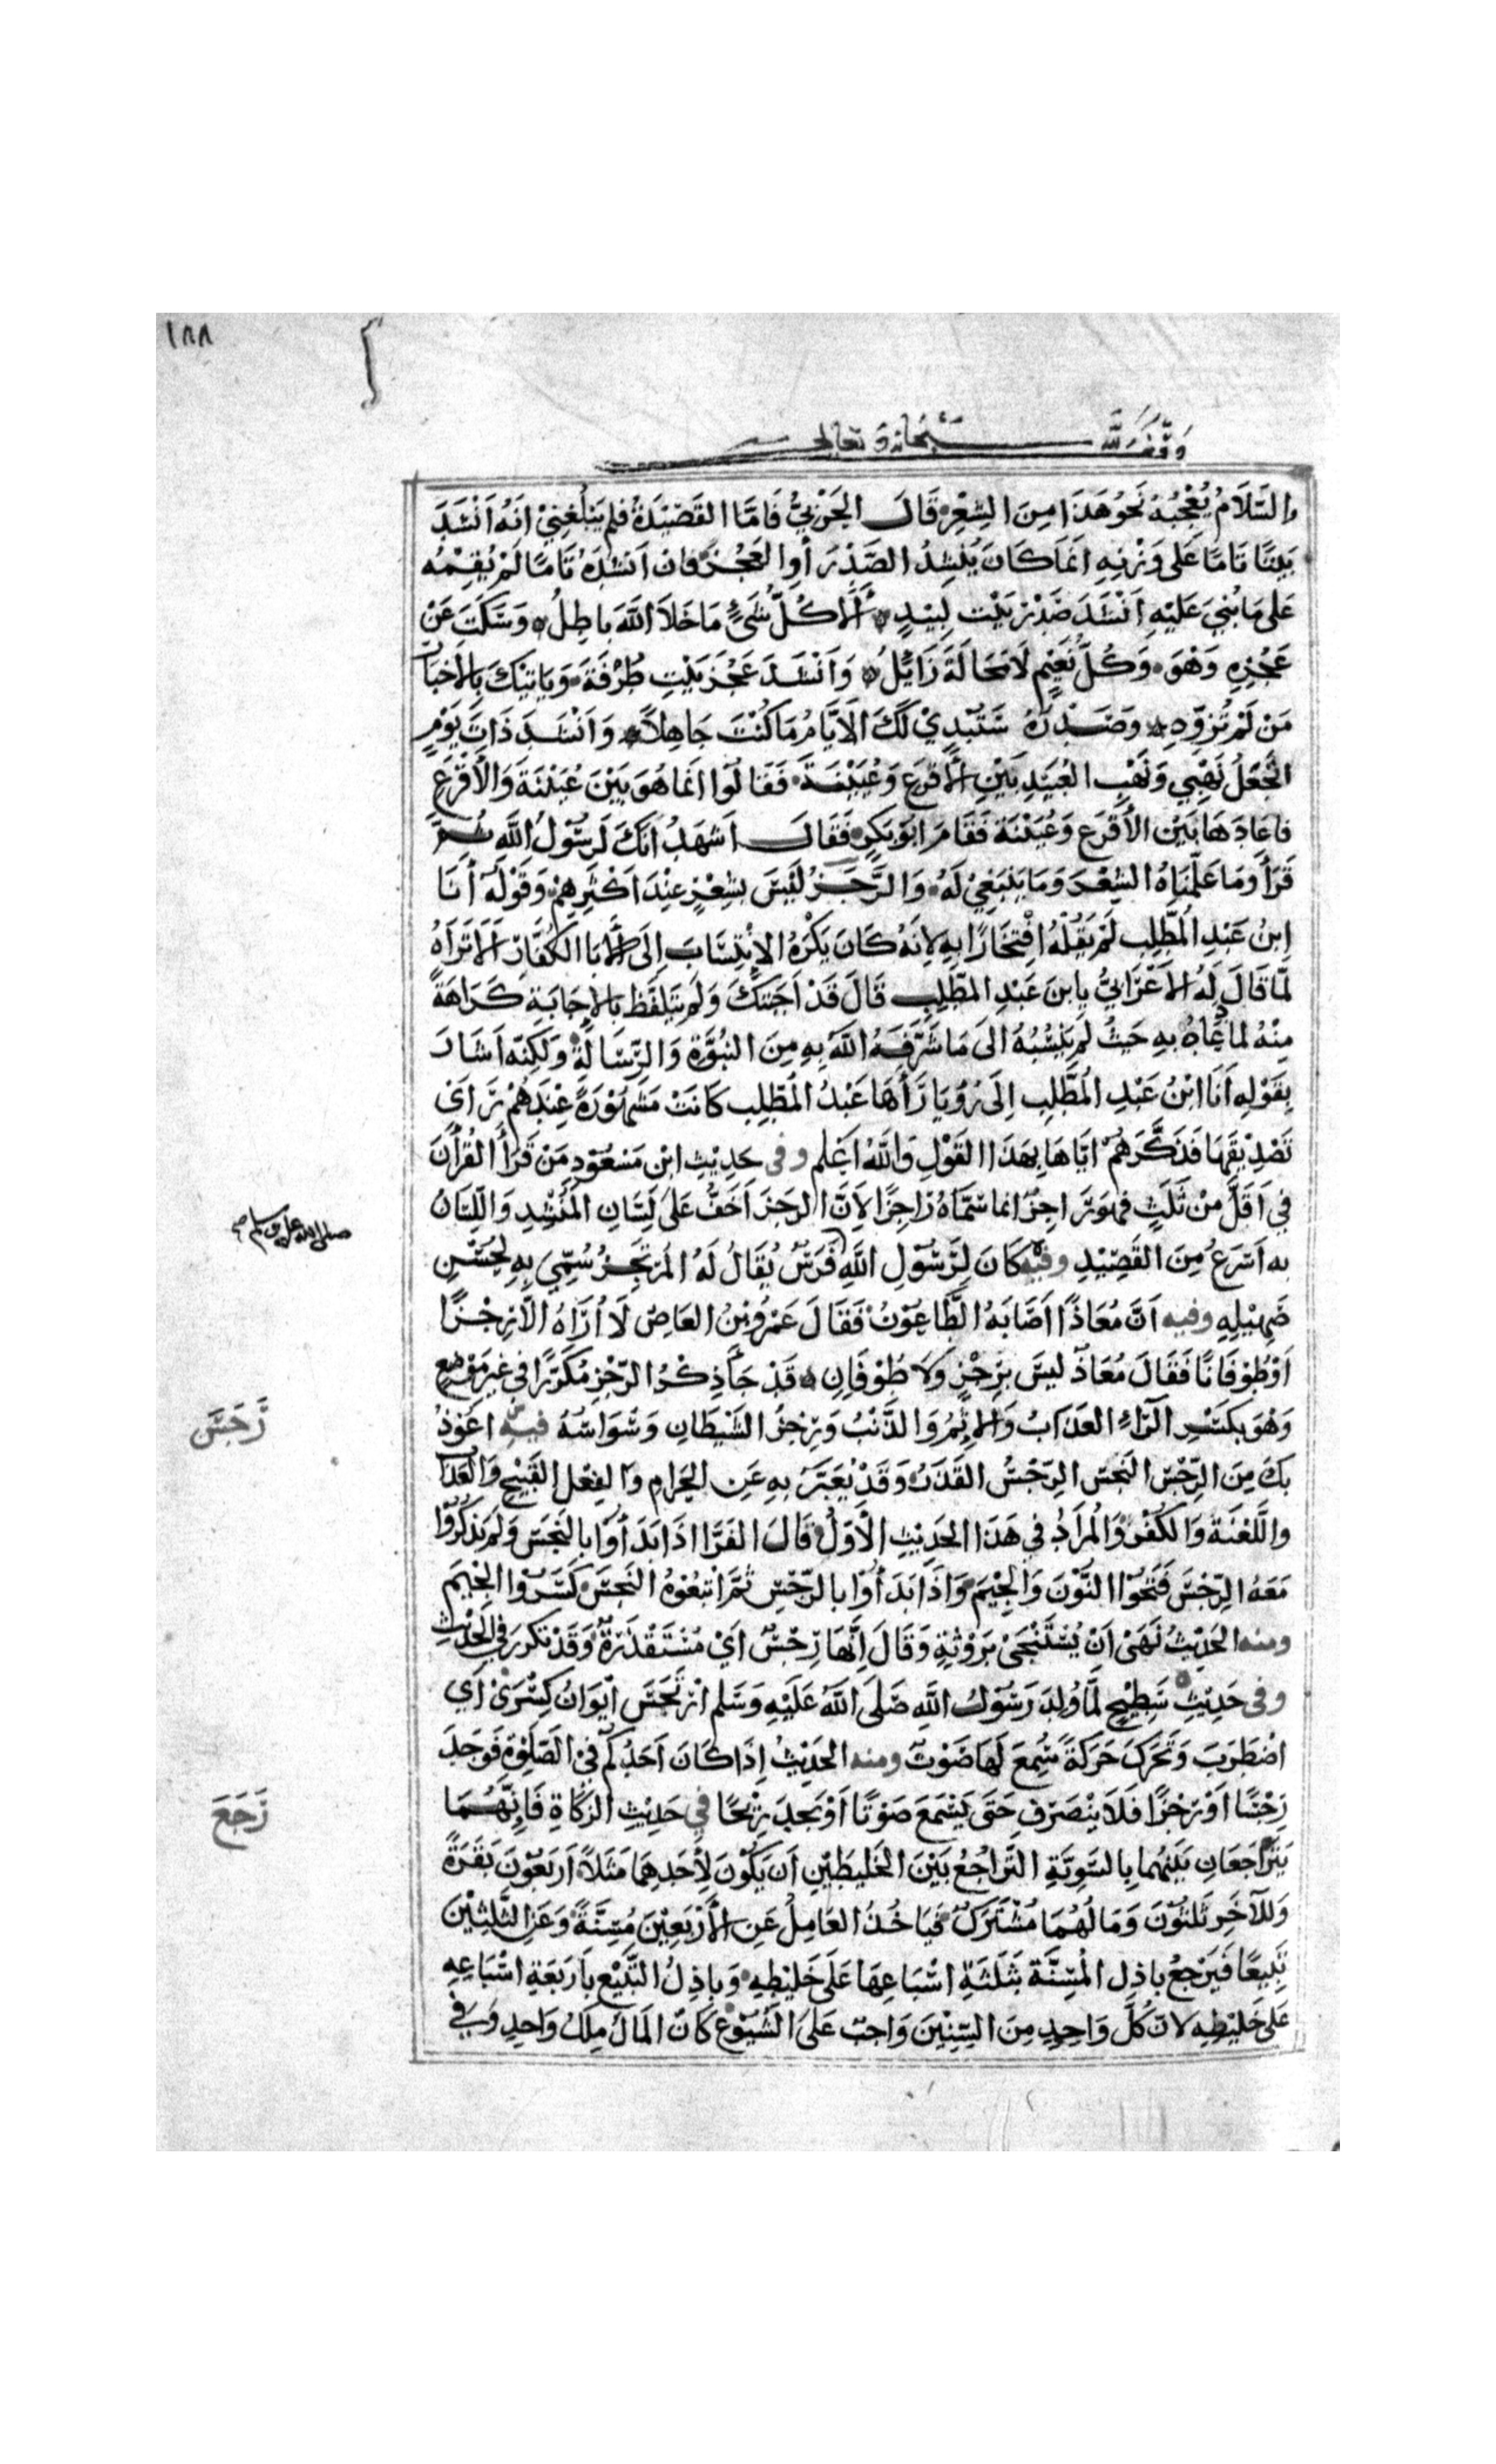 ١٨٨
وقف لله سبحانه وتعالى
والسَّلَامُ يُعْجِبُهُ نَحْوُ هَذَا مِنَ الشِّعْرِ قَالَ الحَرْبِيُّ فَامَّا القَصِيْدَةُ فلم يَبْلُغْنِيْ انَّهُ اَنْشَدَ
بَيْتًا تَامًّا عَلى وَزْنِهِ انَّمَا كَانَ يُنْشِدُ الصَّدْرَ أوِ العَجُزَ فان اَنْشَدَهُ تَامًّا لَمْ يُقِمْهُ
عَلى مَا بُنِيَ عَلَيْهِ اَنْشَدَ صَدْرَ بَيْت لَبِيْدٍ أَلَا كُلُّ شَيْءٍ مَا خَلَا اللَّهَ بَاطِلُ وَسَكَتَ عَنْ
عَجُزِهِ وَهْوَ وَكُلُّ نَعِيْمٍ لَامَحَالَةَ زَايِلُ وَاَنْشَدَ عَجُزَ بَيْتِ طَرَفَةَ وَيَاتِيْكَ بِالاخبار
مَنْ لَمْ تُزَوِّدِ وَصَدْرُهُ سَتُبْدِيْ لَكَ الاَيَّامُ مَا كُنْتَ جَاهِلًا وَاَنْشَدَ ذَاتَ يَوْمٍ
اتَجْعَلُ نَهْبِي وَنَهْبَ العُبَيْدِ بَيْنَ الاَقْرَعِ وَعُيَيْنَةَ فَقَالُوا انَّمَا هُوَ بَيْنَ عُيَيْنَةَ وَالاَقْرَعِ
فاعَادَهَا بَيْنَ الأَقْرَعِ وَعُيَيْنَةَ فَقَامَ ابُو بَكْرٍ فَقَالَ اَشْهَدُ انَّكَ لَرَسُوْلُ اللَّهِ ثُمَّ
قَرَأَ وَمَا عَلَّمْنَاهُ الشِّعْرَ وَمَا يَنْبَغِيْ لَهُ وَالرَّجَزُ لَيْسَ بشِعْرٍ عِنْدَ اَكْثَرِهِمْ وَقَوْلُهُ أَنَا
ابْنُ عَبْدِ المُطَّلِبِ لَمْ يَقُلْهُ افْتِخَارًا بِهِ لِانَّهُ كَانَ يَكْرَهُ الاِنْتِسَابَ اِلَى الاٰبَا الكُفَّارِ اَلَا تَرَاهُ
لَمَّا قَالَ لَهُ الاَعْرَابِيُّ يا ابنَ عَبْدِ المطَّلِبِ قَالَ قَدْ اَجَبْتُكَ وَلَمْ يَتَلَفَّظ بِالاِجَابَةِ كَرَاهَةً
مِنْهُ لما دَعَاهُ بِهِ حَيْثُ لم يَنْسُبْهُ الى مَا شَرَّفَهُ اللَّهُ بِهِ مِنَ النُبُوَّةِ وَالرِّسَالَةِ وَلَكِنَّه اَشَارَ
بِقَوْلِهِ اَنَا ابْنُ عَبْدِ المُطَّلِبِ اِلَى رُؤْيَا رَأَهَا عَبْدُ المُطَّلِبِ كَانَتْ مَشْهُوْرَةً عِنْدَهُمْ رَاَى
تَصْدِيْقَهَا فَذَكَّرَهُمْ ايَّاهَا بِهَذَا القَوْلِ وَاللَّهُ اَعْلَم وفى حَدِيْثِ ابْنِ مَسْعُوْدٍ مَنْ قَرَأَ القُرْأَنَ
فِي اَقَلَّ مِنْ ثَلَثٍ فهوَ رَاجِزٌ انما سَمَّاهُ رَاجِزًا لِاَنَّ الرَجَزَ اَخَفُّ عَلَى لِسَانِ المُنْشِدِ وَاللِّسَانُ
به اَسْرَعُ مِنَ القَصِيْدِ وفيه كَانَ لِرَسُوْلِ اللَّهِ فَرَسٌ يُقَالُ لَهُ المُرْتَجِزُ سُمِّيَ بِهِ لحُسْنِ
صلى الله عليه وسلم
صَهِيْلِهِ وفيه اَنَّ مُعَاذًا اَصَابَهُ الطَّاعُوْنُ فَقَالَ عَمْرُو بْنُ العَاصِ لَا اُرَاهُ اِلَّا رِجْزًا
اَوْ طُوْفَانًا فَقَالَ مُعَاذٌ ليسَ بِرِجْزٍ وَلَا طُوْفَانٍ قَدْ جَاَ ذِكْرُ الرّجْزِ مُكَرَّرًا في غير مَوْضِعٍ
رَجَسَ
وَهُوَ بِكَسْرِ الرَّاءِ العَذَابُ وَالاِثْمُ وَالذَّنْبُ وَرِجْزُ الشَيْطَانِ وَسْوَاسُهُ فيه اعُوْذُ
بِكَ مِنَ الرِّجْسِ النَجِسِ الرِّجْسُ القَذَرُ وَقَدْ يُعَبَّرُ بِهِ عَنِ الحَرَامِ وَالفِعْلِ القَبِيْحِ وَالعَذَابِ
واللَّعْنَةِ وَالكُفْرِ وَالمُرَادُ فِي هَذَا الحَدِيْثِ الاَوَّلُ قَالَ الفَرَّا اذَا بَدَأُوْا بِالنَجَسِ وَلَمْ يَذْكُرُوْا
مَعَهُ الرِّجْسَ فَتَحُوا النُّوْنَ وَالجِيْمَ وَاذَا بَدَأُوْا بالرِّجْسِ ثُمَّ اتْبَعُوْهُ النَجِسَ كَسَرُوا الجِيْمَ
ومنه الحَدِيْثُ نَهَى اَنْ يُسْتَنْجَى بِرَوْثَةٍ وَقَالَ اِنَّهَا رِجْسٌ اَيْ مُسْتَقْذَرَةٌ وَقَدْ تكَرَّرَ فى الحَدِيْثِ
وفى حَدِيْثِ سَطِيْحٍ لَمَّا وُلِدَ رَسُوْلُ اللَّهِ صَلَّى اللَّهُ عَلَيْهِ وَسَلم ارْتَجَسَ ايْوَانُ كِسْرَى اَي
اضْطَرَبَ وَتَحَرَّكَ حَرَكَةً سُمِعَ لَهَا صَوْتٌ ومنه الحَدِيْثُ اِذَا كَانَ اَحَدُكُمْ فِيْ الصَّلوةِ فَوَجَدَ
رِجْسًا اَوْ رِجْزًا فَلَا يَنْصَرِفْ حَتَّى يَسْمَعَ صَوْتًا اَوْ يَجِدَ رِيْحًا فِي حَدِيْثِ الزَكَاةِ فَاِنَّهُمَا
رَجَعَ
يَتَرَاجَعَانِ بَيْنَهُما بِالسَّوِيَّةِ التَّرَاجُعُ بَيْنَ الخَلِيْطَيْنِ اَن يَكُوْنَ لِاَحَدِهِمَا مَثَلًا اَرْبَعُوْنَ بَقَرَةً
وَلِلآخَرِ ثَلثُوْنَ وَمَالُهُمَا مُشْتَرَكٌ فَيَاخُذُ العَامِلُ عَنِ الاَرْبَعِيْنَ مُسِنَّةً وَعَنِ الثَّلثِيْنَ
تَبِيْعًا فَيَرْجِعُ باذِلُ المُسِنَّةِ بِثَلَثَةِ اسْبَاعِهَا عَلَى خَلِيْطِهِ وَبَاذِلُ التَّبِيْعِ بِاَرْبَعَةِ اسْبَاعِهِ
عَلَى خَلِيْطِهِ لانَّ كُلَّ وَاحِدٍ مِنَ السِّنَّيْنِ وَاجِبٌ عَلَى الشُّيُوْعِ كَانَّ المَالَ مِلْكُ وَاحِدٍ وَفي